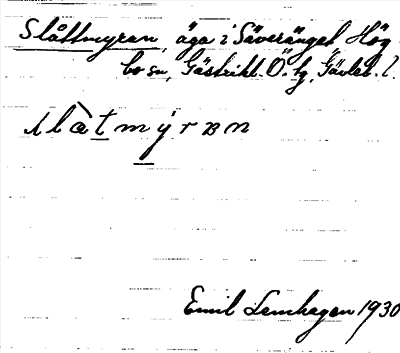 Slåttmyran, äga i Säveränget Hög-
bo sn, Gästrikl. Ö. tg, Gävleb. l.
slàtmýran
Emil Lemhagen 1930